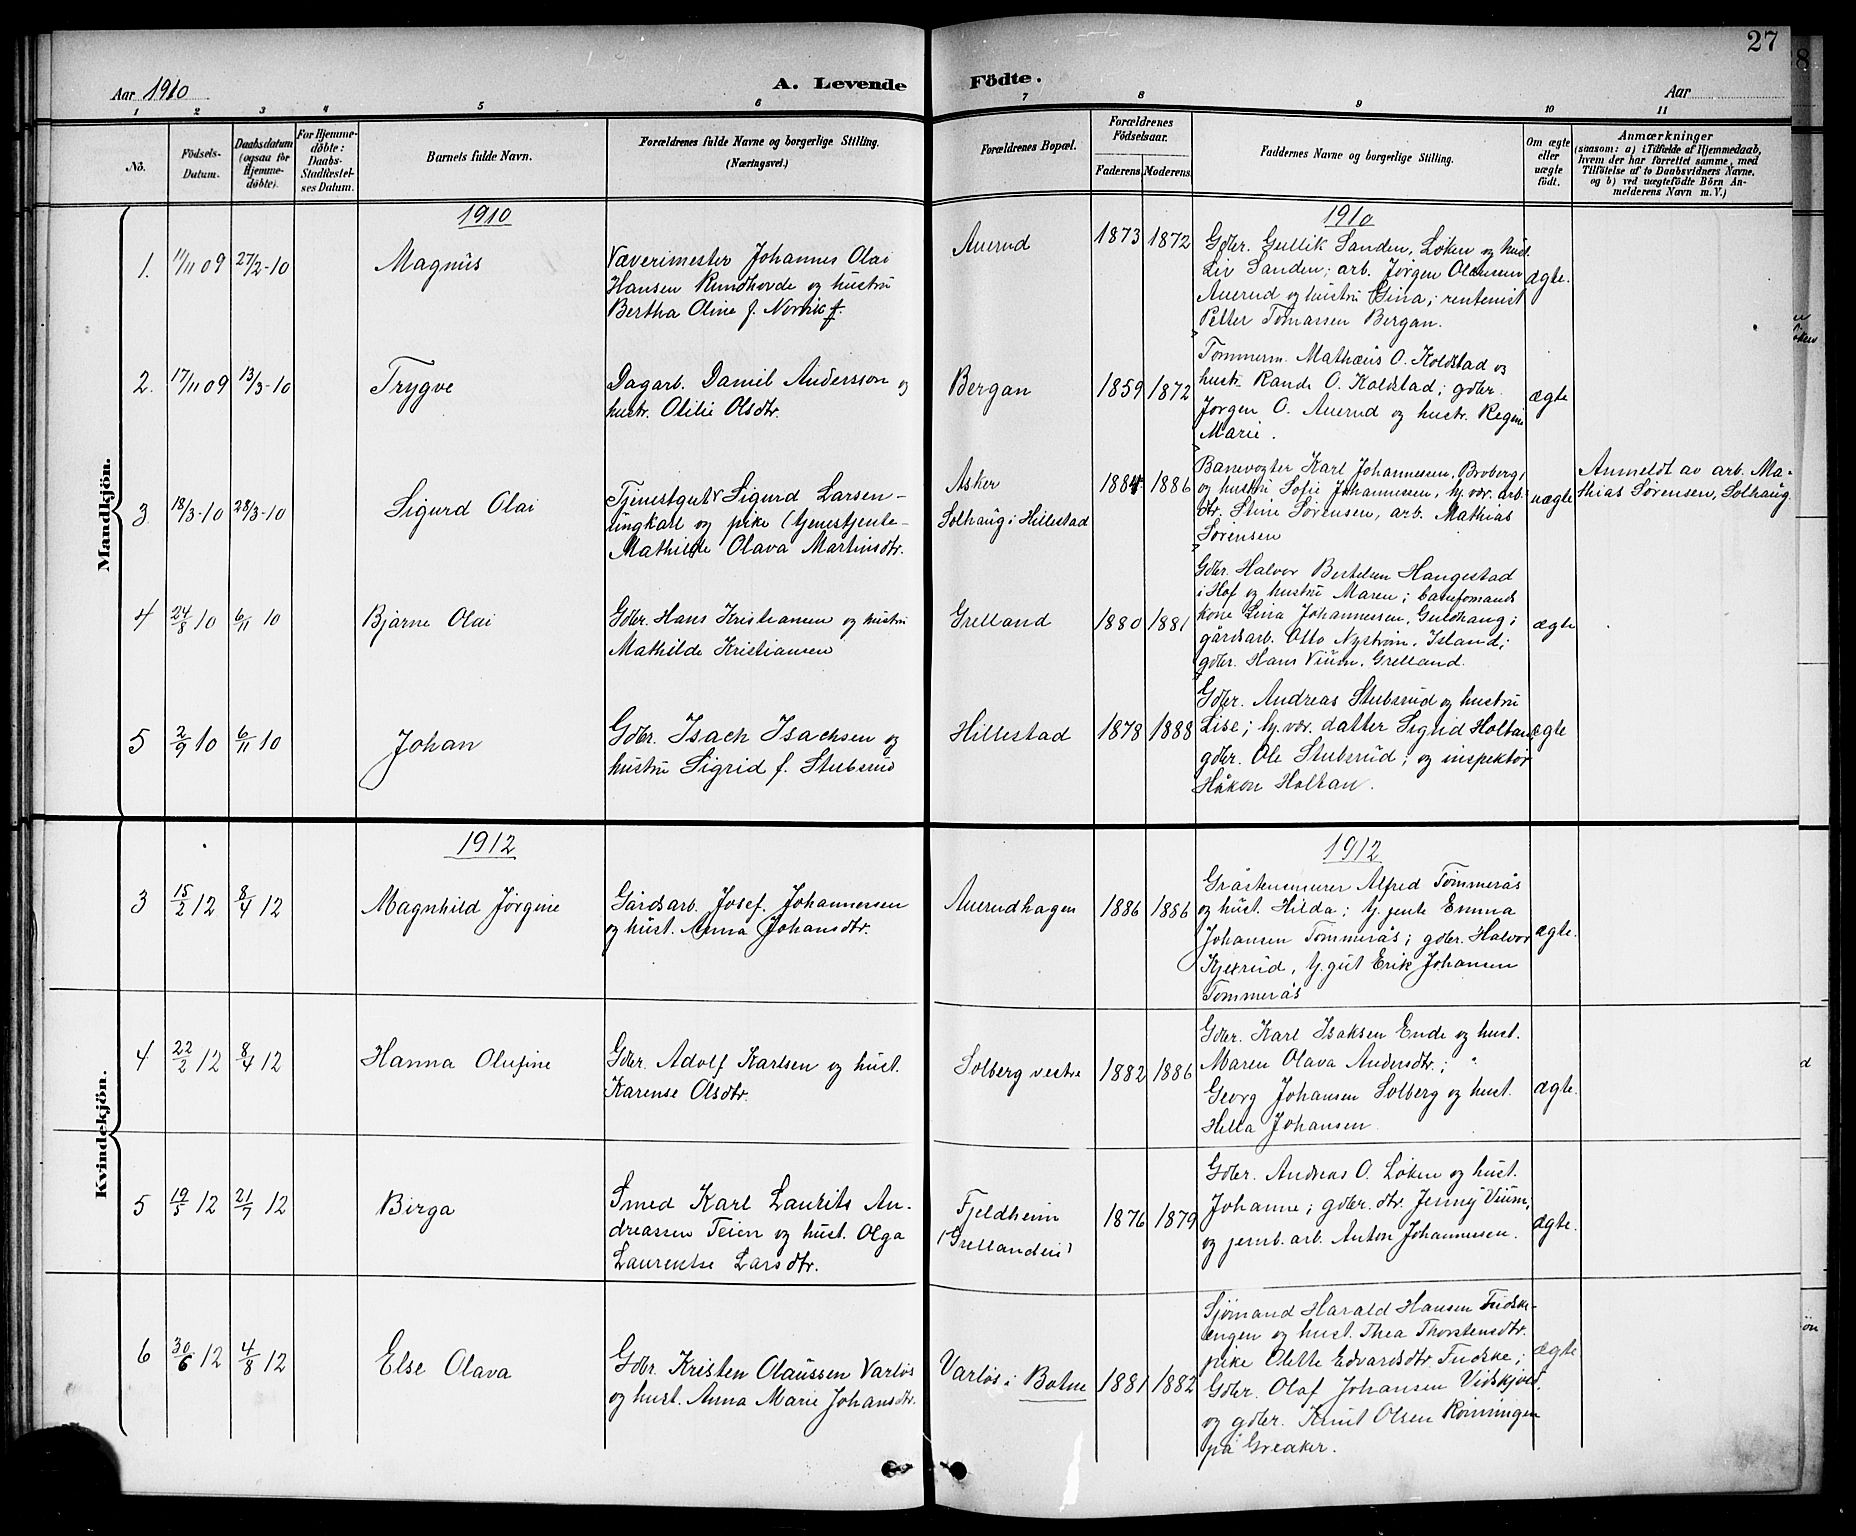 27
Aar 1910
A. Levende
Födte.
Aar
1 2 3 4 5 6 7 8 9 10 11
No.
Födsels-
Datum.
Daabsdatum
(ogsaa for
Hjemme-
døbte).
For Hjemme-
døbte:
Daabs-
Stadfæstel-
ses Datum.
Barnets fulde Navn.
Forældrenes fulde Navne og borgerlige Stilling.
(Næringsvei.)
Forældrenes Bopæl.
Forældrenes
Födselsaar.
Faderens. Moderens.
Faddernes Navne og borgerlige Stilling.
Om ægte
eller
uægte
födt.
Anmærkninger
(saasom: a) i Tilfælde af Hjemmedaab,
hvem der har forrettet samme, med
Tilföielse af to Daabsvidners Navne,
og b) ved uægtefödte Börn An-
melderens Navn m. V.)
Mandkjön.
1910
1910
1. 11/11 09 27/2-10 Magnus
Væverimester Johannes Olai
Hansen Rundhovde og hustru
Bertha Oline f. Norvik
Auerud 1873 1872
Gdbr. Gullik Sanden, Løken og hust.
Liv Sanden; arb. Jørgen Olausen
Auerud og hustru Gina; rentenist
Petter Tomassen Bergan.
ægte.
2. 17/11 09 13/3-10 Trygve
Dagarb. Daniel Andersson og
hustr. Otilie Olsdtr.
Bergan 1859 1872
Tømmerm. Mathæus O. Koldstad og
hustr. Rande O. Koldstad; gdbr.
Jørgen O. Auerud og hustr. Regine
Marie.
ægte
3 18/3-10 28/3-10 Sigurd Olai
Tjenestgut Sigurd Larsen -
ungkarl og pike (tjenestjente-
Mathilde Olava Martinsdtr.
Asker
Solhaug i Hillestad
1884 1886
Banevogter Karl Johannessen, Broberg,
og hustru Sofie Johannessen, hj. vær. arb.
dtr. Stine Sørensen, arb. Mathias
Sørensen
uægte
Anmeldt av arb. Ma-
thias Sørensen, Solhaug.
4 24/8 10 6/11 10 Bjarne Olai
Gdbr. Hans Kristiansen og hustru
Mathilde Kristiansen
Grelland 1880 1881
Gdbr. Halvor Bertelsen Hangestad
i Hof og hustru Maren; baneformands
kone Lina Johannessen, Guldhaug;
gårdsarb. Otto Nystrøm, Island;
gdbr. Hans Vium, Grelland.
ægte
5 2/9 10 6/11 10 Johan
Gdbr. Isach Isachsen og
hustru Sigrid f. Stubsrud
Hillestad 1878 1888
Gdbr. Andreas Stubsrud og hustru
Lise; hj. vær. datter Sigrid Holtan,
gdbr. Ole Stubsrud; og inspektør
Håkon Holtan.
ægte
Kvindekjön.
1912
1912
3 15/2 12 8/4 12 Magnhild Jørgine
Gårdsarb. Josef. Johannessen
og hust. Anna Johansdtr.
Auerudhagen 1886 1886
Gråstensmurer Alfred Tømmerås
og hust. Hilda; tj. jente Emma
Johansen Tømmerås; gdbr. Halvor
Kjexrud, tj. gut Erik Johansen
Tømmerås
ægte.
4 22/2 12 8/4 12 Hanna Olufine
Gdbr. Adolf Karlsen og hust.
Karense Olsdtr.
Solberg vestre 1882 1886
Gdbr. Karl Isaksen Ende og hust.
Maren Olava Andersdtr.; "
Georg Johansen Solberg og hust.
Hilla Johansen.
ægte.
5 19/5 12 21/7 12 Birga
Smed Karl Laurits An-
dreassen Teien og hust. Olga
Laurentse Larsdtr.
Fjeldheim
(Grellandeie)
1876 1879
Gdbr. Andreas O. Løken og hust.
Johanne; gdbr. dtr. Jenny Vium,
og jernb. arb. Anton Johannessen.
ægte.
6 30/6 12 4/8 12 Else Olava
Gdbr. Kristen Olaussen Varløs
og hust. Anna Marie Johansdtr.
Varløs i Botne 1881 1882
Sjømand Harald Hansen Tudske-
engen og hust. Thea Thorstensdtr.
pike Olette Edvardsdtr. Tudske;
Gdbr. Olaf Johansen Vidskjold,
og gdbr. Knut Olsen Rønningen
på Greaker.
ægte